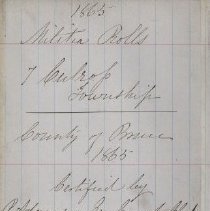 1865
Militia Rolls
7 Culross
Township
County of Bruce
1865
Certified by